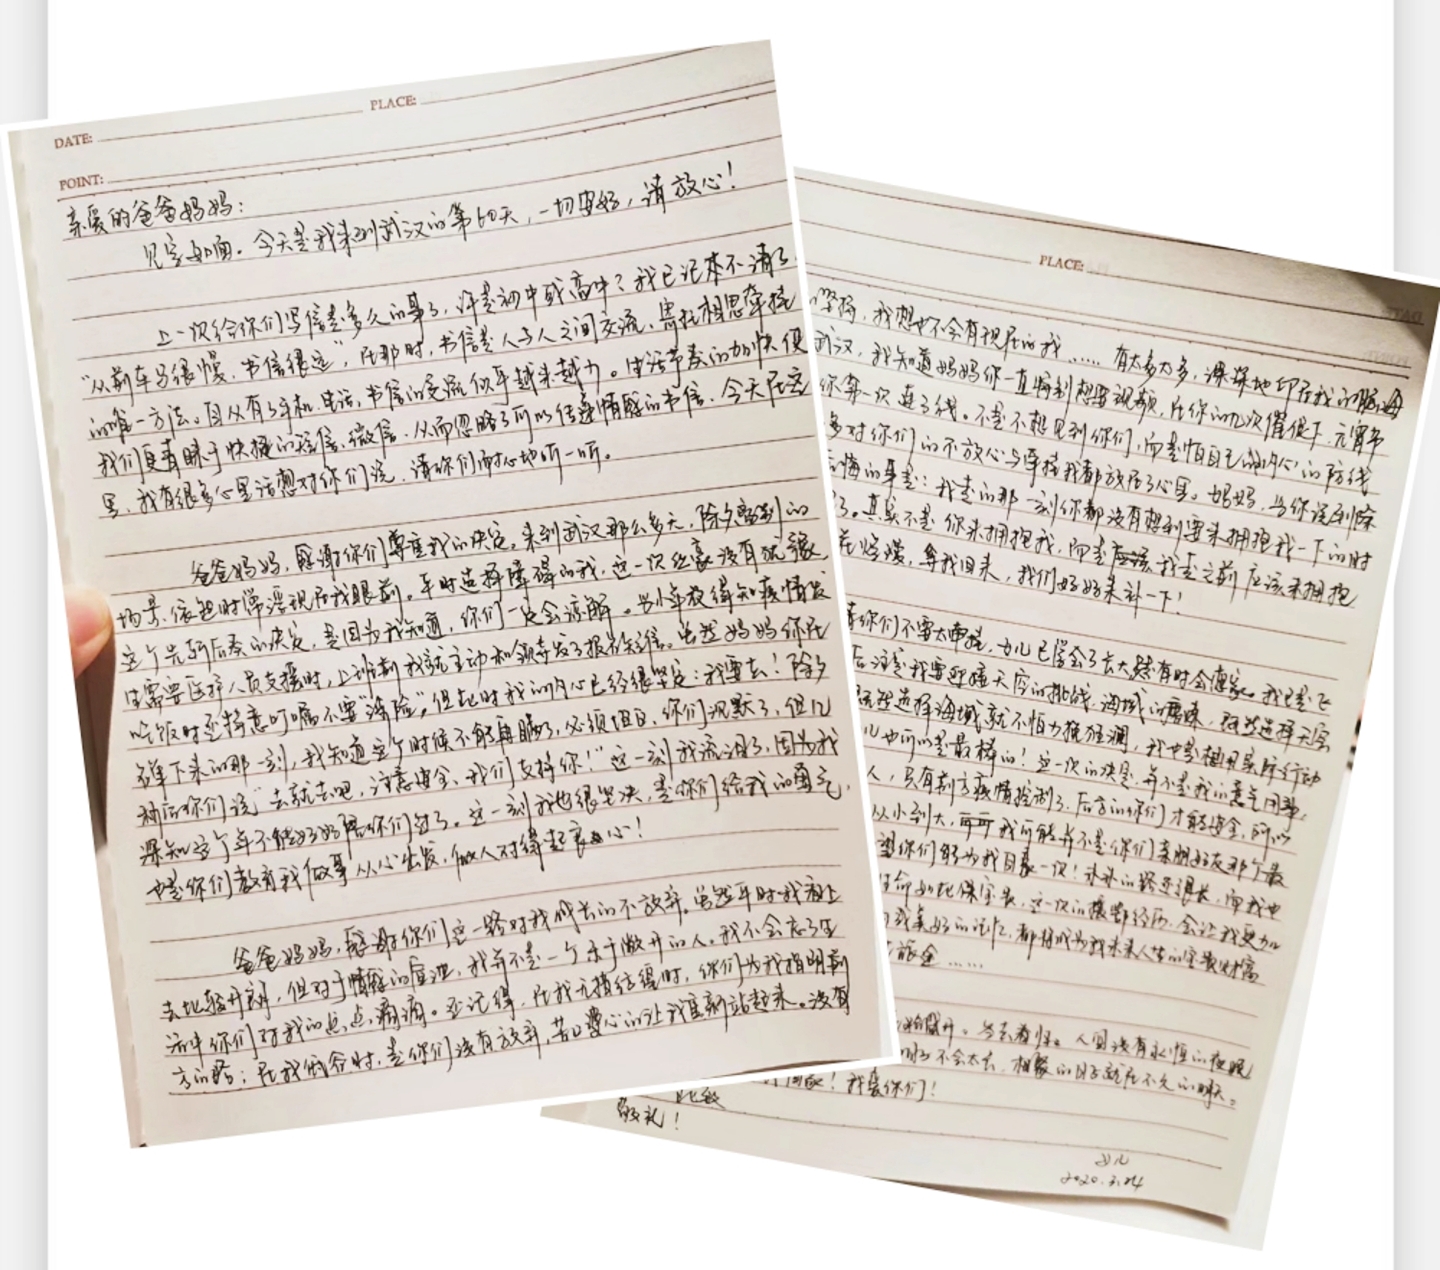 DATE: PLACE:
POINT:
亲爱的爸爸妈妈：
见字如面。今天是我来到武汉的第60天，一切安好，请放心！
上一次给你们写信是多久的事了，许是初中或高中？我已记不清了
“从前车马很慢，书信很远”，在那时，书信是人与人之间交流，寄托相思牵挂
的唯一方法。自从有了手机、电话，书信的交流似乎越来越少。生活节奏的加快使
我们更青睐于快捷的短信、微信，从而忽略了可以传递情感的书信，今天在这
里，我有很多心里话想对你们说，请你们耐心地听一听。
爸爸妈妈，感谢你们尊重我的决定。来到武汉那么多天，除夕离别的
场景，依旧时常浮现在我眼前。平时选择障碍的我，这一次丝毫没有犹豫，
这个先斩后奏的决定，是因为我知道，你们一定会谅解。当小年夜得知疫情发
生需要医护人员支援时，上班前我就主动和领导发了报名短信。虽然妈妈你在
吃饭时还特意叮嘱不要“涉险”，但此时我的内心已经很坚定：我要去！除夕
名单下来的那一刻，我知道这个时候不能再瞒了，必须坦白，你们沉默了，但几
秒后你们说“去就去吧，注意安全，我们支持你！”这一刻我流泪了，因为我
深知这个年不能好好陪你们过了。这一刻我也很坚决，是你们给我的勇气，
也是你们教育我做事从心出发，做人对得起良心！
爸爸妈妈，感谢你们这一路对我成长的不放弃。虽然平时我看上
去比较开朗，但对于情感的宣泄，我并不是一个乐于敞开的人。我不会忘了生
活中你们对我的点点滴滴。还记得，在我无措彷徨时，你们为我指明前
方的路；在我低谷时，是你们没有放弃，苦口婆心的让我重新站起来。没有
PLACE:
坚持，我想也不会有现在的我……有太多太多，深深地印在我的脑海
武汉，我知道妈妈你一直特别想要视频，在你的几次催促下，元宵节
你第一次连了线。不是不想见到你们，而是怕自己内心的防线
多对你们的不放心与牵挂我都放在了心里。妈妈，当你说到除
后悔的事是：我走的那一刻你都没有想到要来拥抱我一下的时
了。其实不是你来拥抱我，而是应该我走之前应该来拥抱
花烂漫，等我回来，我们好好来补一下！
你们不要太牵挂，女儿已学会了长大
后注定我要迎接天空的挑战，海域的磨练，既然选择天空
既然选择海域就不怕力挽狂澜，我也要用实际行动
儿也可以是最棒的！这一次的决定，并不是我的意气用事，
人，只有前方疫情控制了，后方的你们才能安全，所以
从小到大，我可能并不是你们亲朋好友那个最
望你们能为我自豪一次！未来的路还很长，而我也
命如此保家长，这一次的援鄂经历，会让我更加
或美好的记忆，都将成为我未来人生的宝贵财富
旅途……
开。当去看你。人间没有永恒的夜晚
不会太长，相聚的日子就在不久的明天。
回家！我爱你们！
此致
敬礼！
女儿
2020.3.24